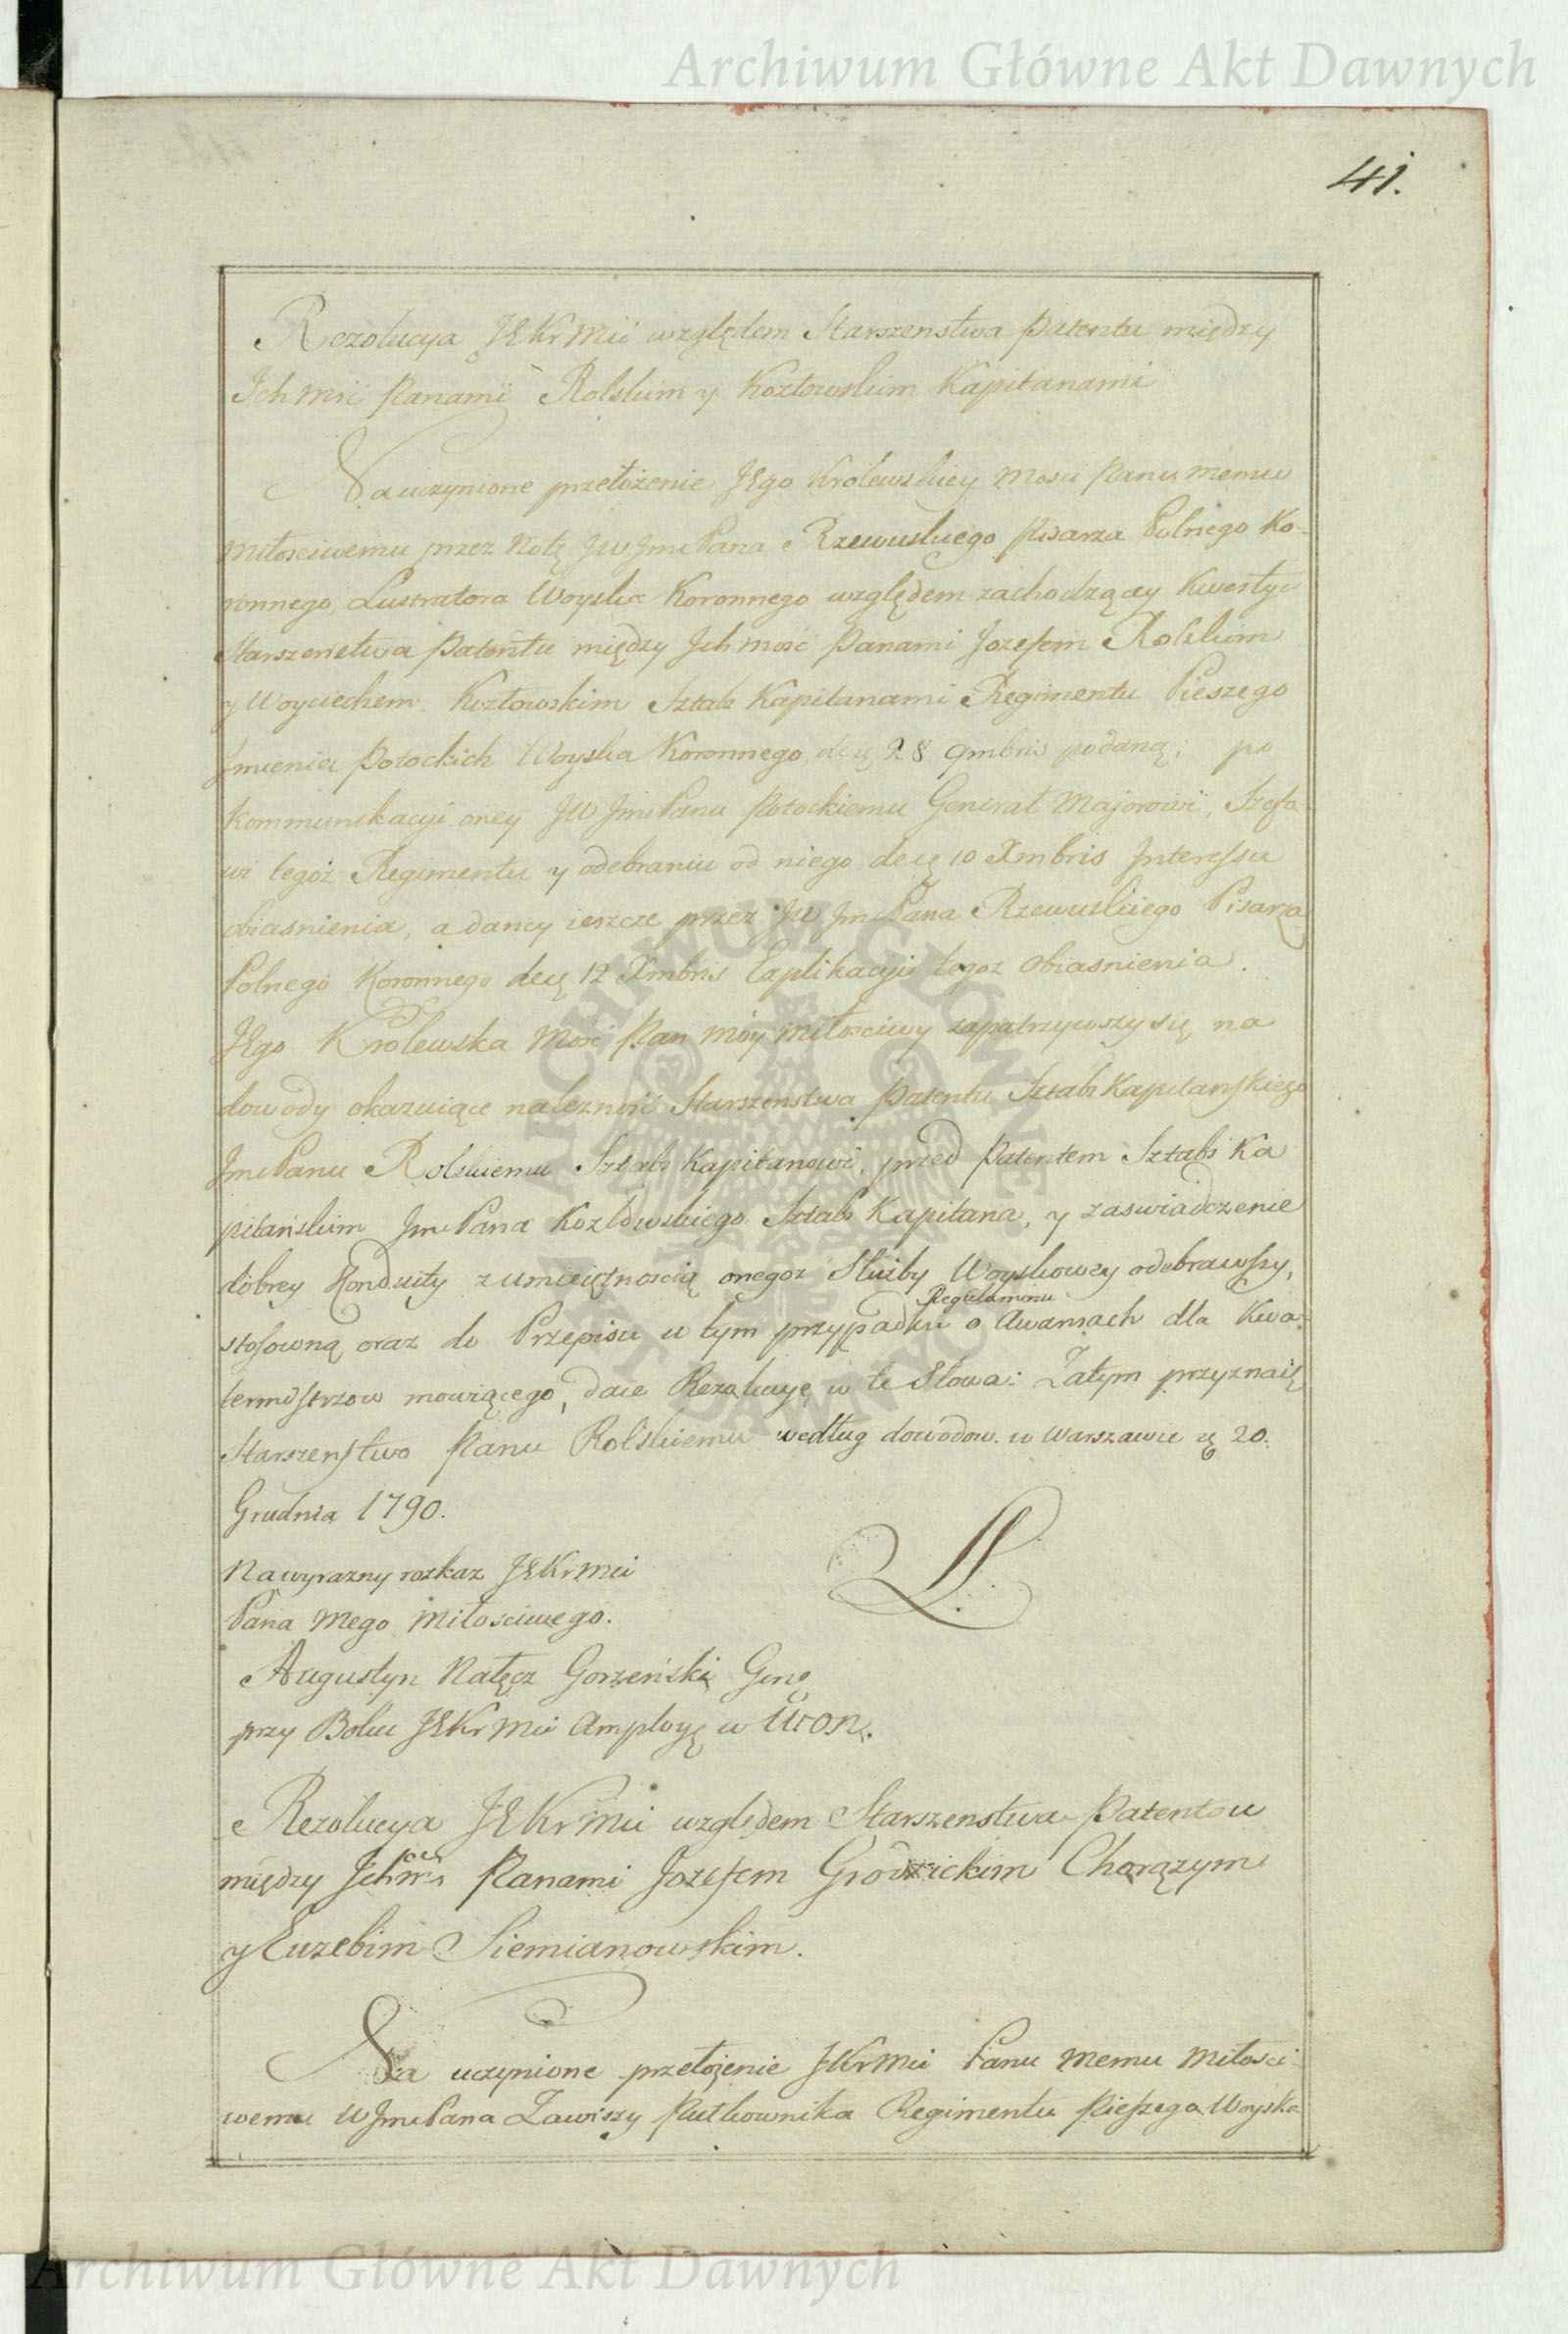 Archiwum Główne Akt Dawnych
41.
Rezolucya JEKrMci względem Starszenstwa Patentu między
Ichmść Panami Rolskim y Kozłowskim Kapitanami
Na uczynione przełożenie JEgo Krolewskiey Mosci Panu memu
Miłosciwemu przez Notę JW JmcPana Rzewuskiego Pisarza Polnego Ko-
ronnego, Lustratora Woyska Koronnego względem zachodzącey Kwestyi
Starszenstwa Patentu między Ichmość Panami Jozefem Rolskim
y Woyciechem Kozłowskim Sztabs Kapitanami Regimentu Pieszego
Jmienia Potockich Woyska Koronnego de 28 9mbris podaną; po
kommunikacyi oney JW JmcPanu Potockiemu Generał Majorowi, Szefo
wi tegoż Regimentu y odebraniu od niego de 10 Xmbris Interessu
obiasnienia, a daney ieszcze przez JW JmcPana Rzewuskiego Pisarza
Polnego Koronnego de 12 Xmbris Explikacyi tegoz Obiasnienia.
JEgo Krolewska Mość Pan móy Miłosciwy zapatrzywszy się na
dowody okazuiące należność Starszenstwa Patentu Sztabs Kapitanskiego
JmcPanu Rolskiemu Sztabs Kapitanowi, przed Patentem Sztabs Ka
pitańskim JmcPana Kozłowskiego Sztabs Kapitana, y zaswiadczenie
dobrey Konduity z umieiętnoscią onegoz Służby Woyskowey odebrawszy,
Regulaminu
stosowną oraz do Przepisu w tym przypadku o Awansach dla Kwa-
termistrzow mowiącego, daie Rezolucyę w te Słowa: Zatym przyznaię
Starszenstwo Panu Rolskiemu według dowodow. w Warszawie 20.
Grudnia 1790.
Na wyrazny rozkaz JEKrMci
Pana Mego Miłosciwego.
Augustyn Nałęcz Gorzeński Gen
przy Boku JEKrMci
Rezolucya JEKrMci względem Starszenstwa Patentow
między Ichmć Panami Jozefem Grodzickim Chorązym
y Euzebim Siemianowskim.
Na uczynione przełożenie JKrMci Panu memu Miłosci-
wemu WJmcPana Zawiszy Pułkownika Regimentu Pieszego Woyska
ARCHIWUM GŁÓWNE AKT DAWNYCH
Archiwum Główne Akt Dawnych